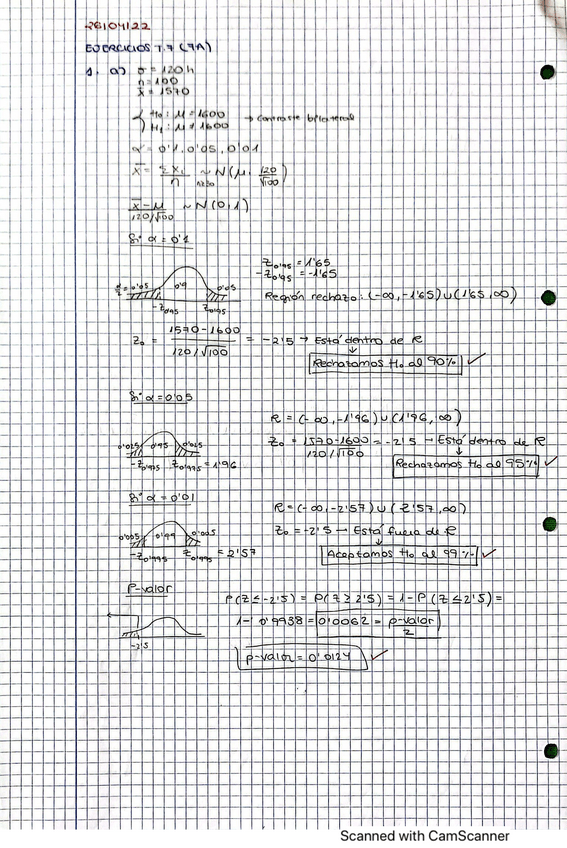 28/04/22
EJERCICIOS T.7 (7A)
1. a) σ = 120 h
n = 100
x̄ = 1570
{ H₀: μ = 1600
H₁: μ ≠ 1600 → Contraste bilateral
α = 0'1, 0'05, 0'01
X̄ = Σxᵢ/n ~ N(μ, 120/√100)
n≥30
X̄-μ / 120/√100 ~ N(0,1)
Si α = 0'1
Z₀'₉₅ = 1'65
-Z₀'₉₅ = -1'65
α/2 = 0'05 0'9 0'05
-Z₀'₉₅ Z₀'₉₅
Región rechazo: (-∞, -1'65) ∪ (1'65, ∞)
Z₀ = 1570-1600 / 120/√100 = -2'5 → Está dentro de R
↓
Rechazamos H₀ al 90% ✓
Si α = 0'05
R = (-∞, -1'96) ∪ (1'96, ∞)
0'025 0'95 0'025
-Z₀'₉₇₅ Z₀'₉₇₅ = 1'96
Z₀ = 1570-1600 / 120/√100 = -2'5 → Está dentro de R
↓
Rechazamos H₀ al 95% ✓
Si α = 0'01
R = (-∞, -2'57) ∪ (2'57, ∞)
0'005 0'99 0'005
-Z₀'₉₉₅ Z₀'₉₉₅ = 2'57
Z₀ = -2'5 → Está fuera de R
↓
Aceptamos H₀ al 99% ✓
P-valor
P(Z ≤ -2'5) = P(Z ≥ 2'5) = 1 - P(Z ≤ 2'5) =
1 - 0'9938 = 0'0062 = p-valor/2
-2'5
p-valor = 0'0124 ✓
Scanned with CamScanner